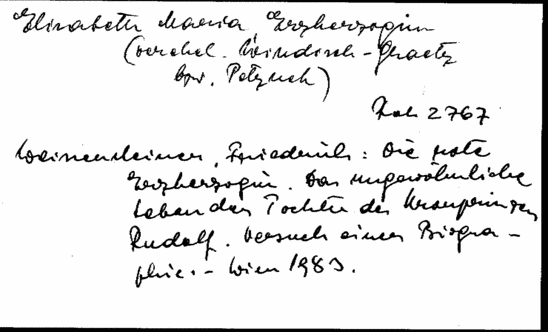 Elisabeth Maria, Erzherzogin
(verehel. Windisch-Graetz
bzw. Petznek)
Zoh 2767
Weissensteiner, Friedrich: Die rote
Erzherzogin. Das ungewöhnliche
Leben der Tochter des Kronprinzen
Rudolf. Versuch einer Biogra-
phie. - Wien 1983.